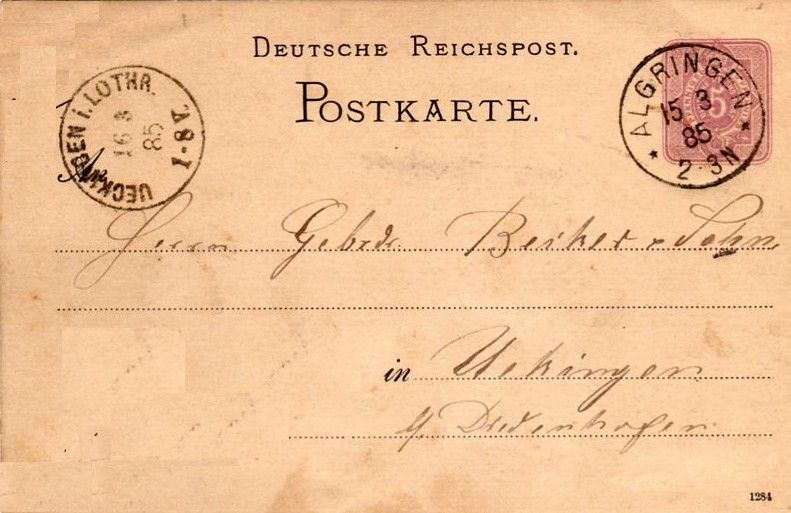 DEUTSCHE REICHSPOST.
POSTKARTE.
UECKINGEN i. LOTHR.
16 3
85
7-8 V
ALGRINGEN
15 3
85
2-3N
5
An
Herrn Gebrdr Becker & Sohn
in Uekingen
b/ Diedenhofen
1284